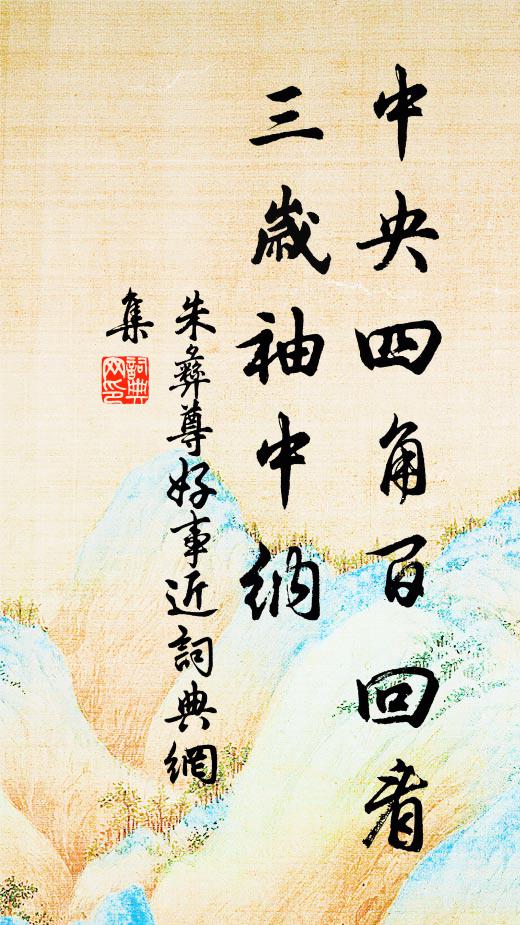 中央四角百回看
三歲袖中納
朱彝尊好事近詞典網
集
詞典
网印